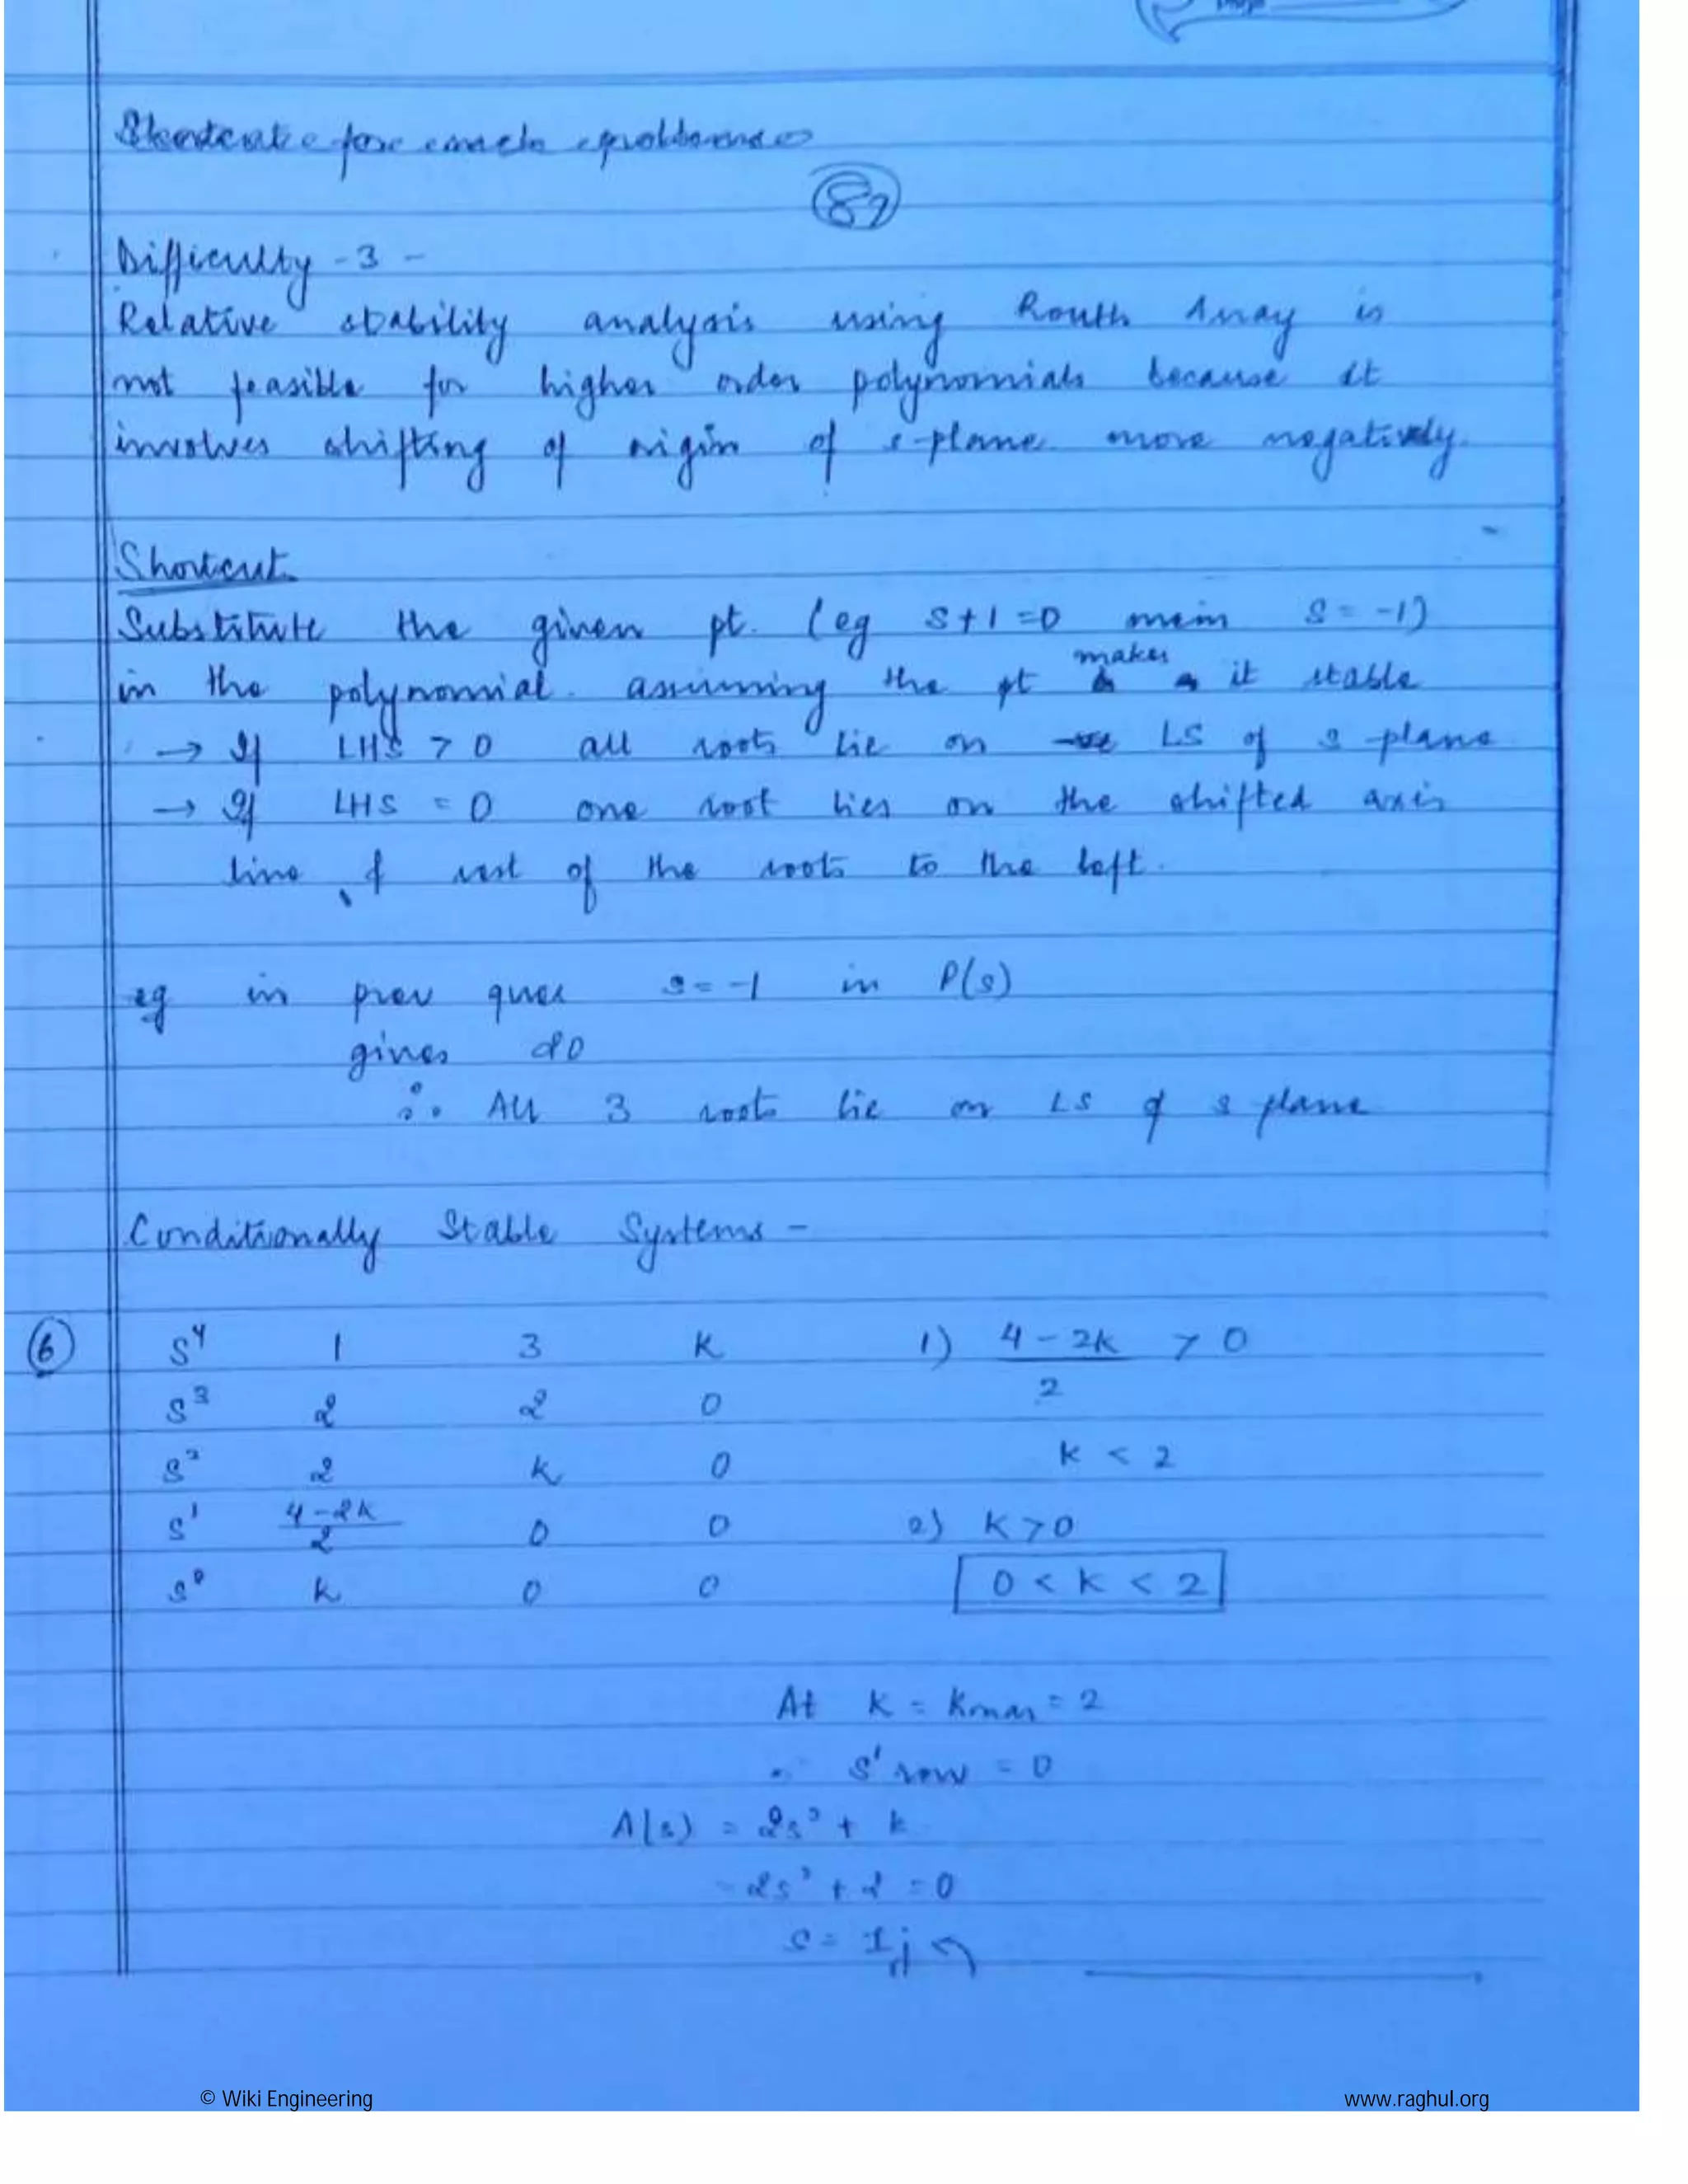 Shortcut for such problems
82
Difficulty - 3 -
Relative stability analysis using Routh Array is
not feasible for higher order polynomials because it
involves shifting of origin of s-plane more negatively.
Shortcut
Substitute the given pt. (eg S+1=0 S = -1)
in the polynomial. assuming the pt makes it stable
→ If LHS > 0 all roots lie on LS of s-plane
→ If LHS = 0 one root lies on the shifted axis
line & rest of the roots to the left.
eg in prev ques s = -1 in P(s)
gives
∴ All 3 roots lie on LS of s plane
Conditionally Stable Systems -
6 S⁴ 1 3 K 1) (4 - 2K)/2 > 0
S³ 2 2 0
S² 2 K 0 K < 2
S¹ (4-2K)/2 0 0 2) K > 0
S⁰ K 0 0 0 < K < 2
At K = Kmax = 2
S¹ row = 0
A(s) = 2s² + k
2s² + 2 = 0
S = 1j
© Wiki Engineering www.raghul.org